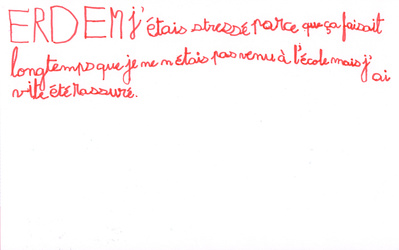 ERDEM j'étais stressé parce que ça faisait
longtemps que je ne m étais pas venu à l'école mais j'ai
vite été rassuré.